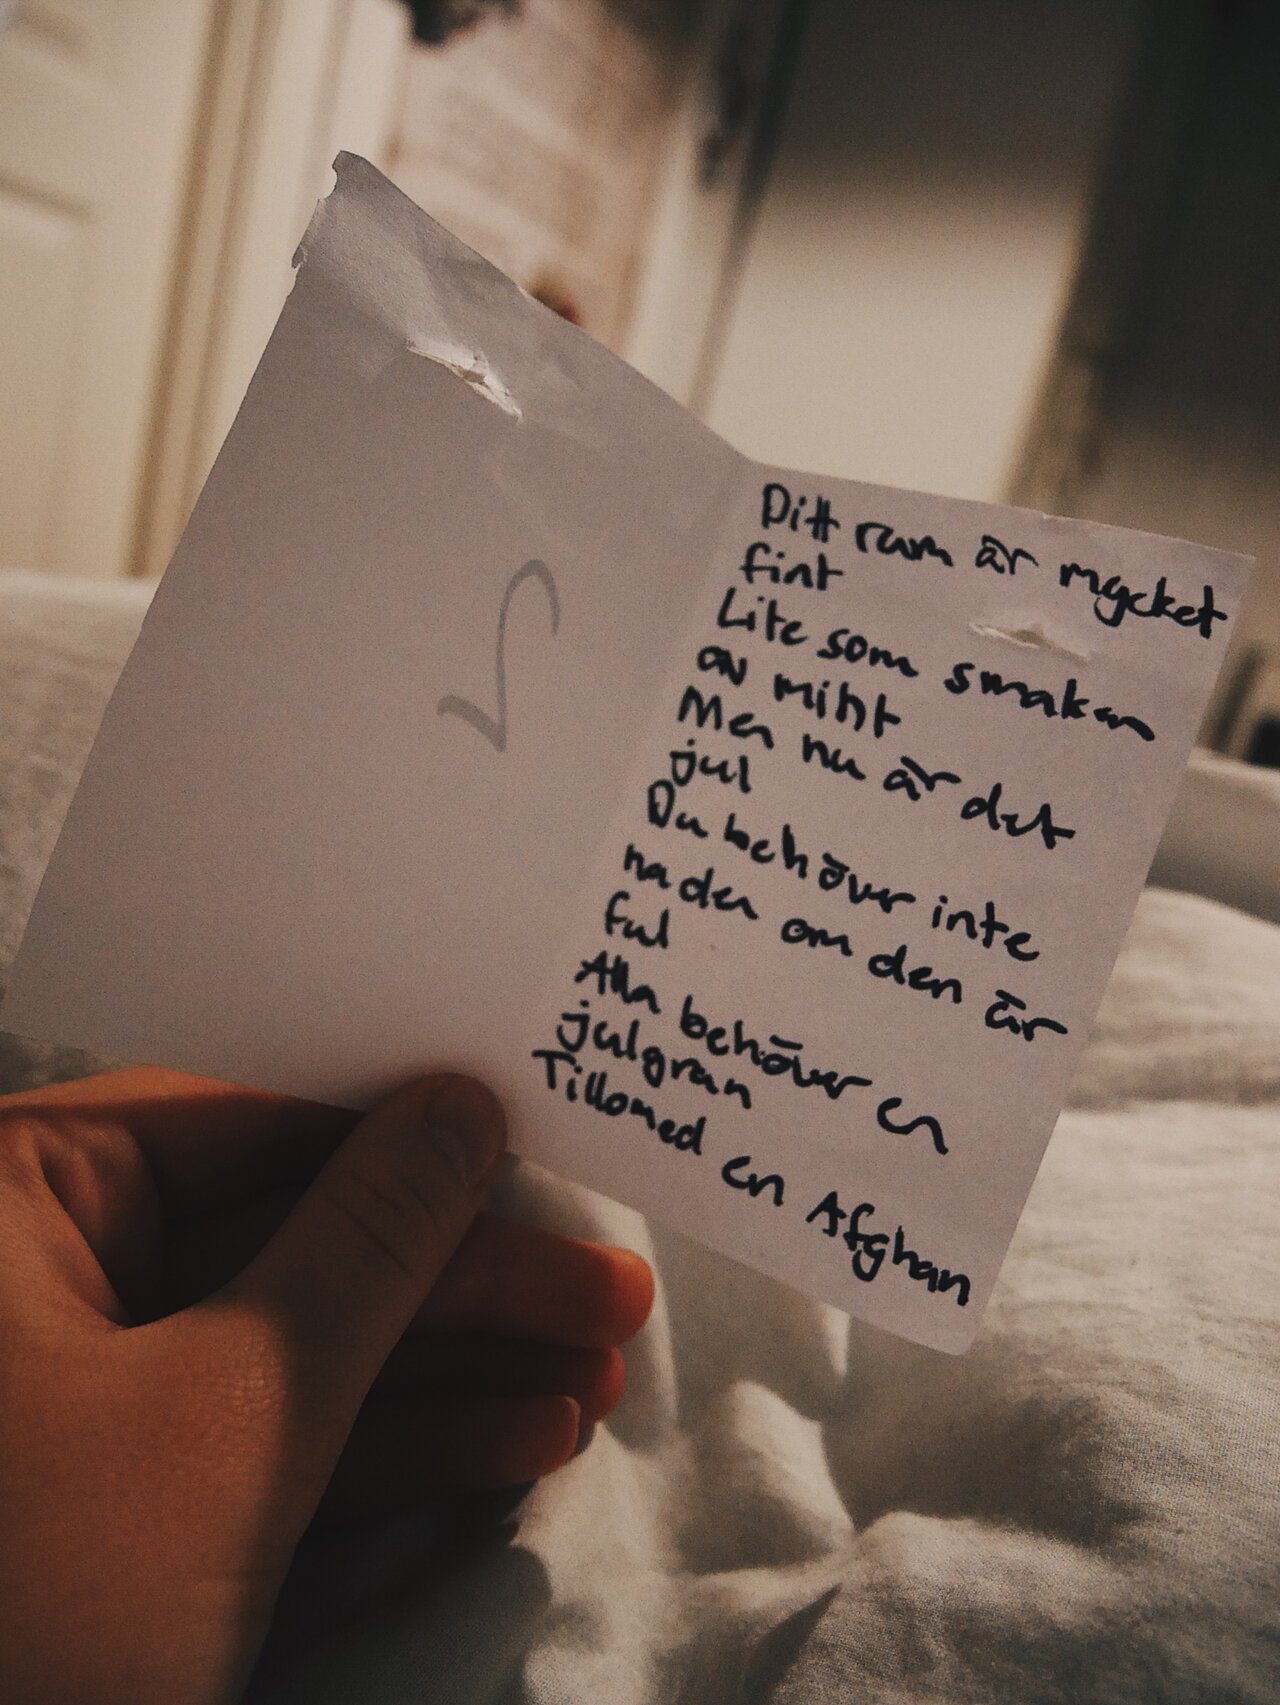 Ditt rum är mycket
fint
Lite som smaken
av mint
Men nu är det
jul
Du behöver inte
na den om den är
ful
Alla behöver en
julgran
Tillomed en Afghan